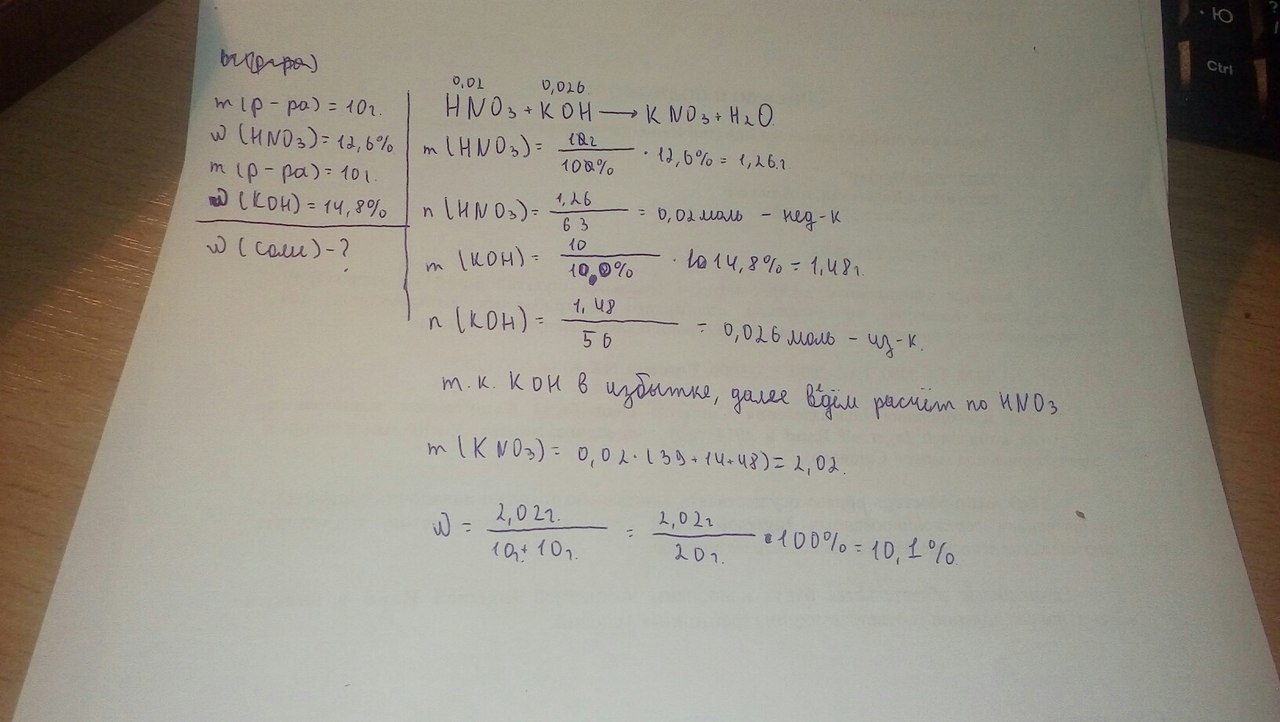 m (р-ра) = 10г.
w (HNO3) = 12,6%
m (р-ра) = 10г.
w (KOH) = 14,8%
w (соли) - ?
0,02 0,026
HNO3 + KOH → KNO3 + H2O
m (HNO3) = 10г / 100% · 12,6% = 1,26г.
n (HNO3) = 1,26 / 63 = 0,02 моль - нед-к
m (KOH) = 10 / 100% · 14,8% = 1,48г.
n (KOH) = 1,48 / 56 = 0,026 моль - из-к.
т.к. KOH в избытке, далее ведём расчёт по HNO3
m (KNO3) = 0,02 · (39+14+48) = 2,02.
w = 2,02г. / 10г. + 10г. = 2,02г / 20г. · 100% = 10,1%.
Ю
Ctrl